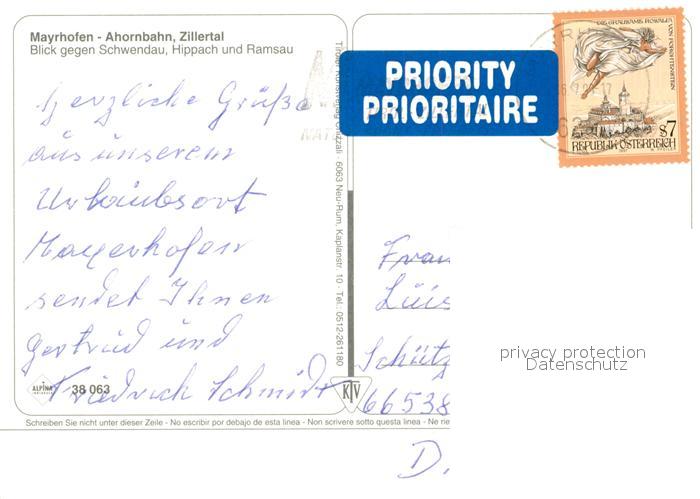 Mayrhofen - Ahornbahn, Zillertal
Blick gegen Schwendau, Hippach und Ramsau
Herzliche Grüße
aus unserem
Urlaubsort
Mayerhofen
sendet Ihnen
Gertrud und
Friedrich Schmidt
ALPINA
38 063
Schreiben Sie nicht unter dieser Zeile - No escribir por debajo de esta linea - Non scrivere sotto questa linea - Ne
Tiroler Kunstverlag Chizzali - 6063 Neu-Rum, Kaplanstr. 10 - Tel.: 0512-261180
KTV
PRIORITY
PRIORITAIRE
DIE GRAUSAME ROSALIA
VON FORCHTENSTEIN
S7
REPUBLIK ÖSTERREICH
Frau
Luis
Schütz
66538
D.
privacy protection
Datenschutz